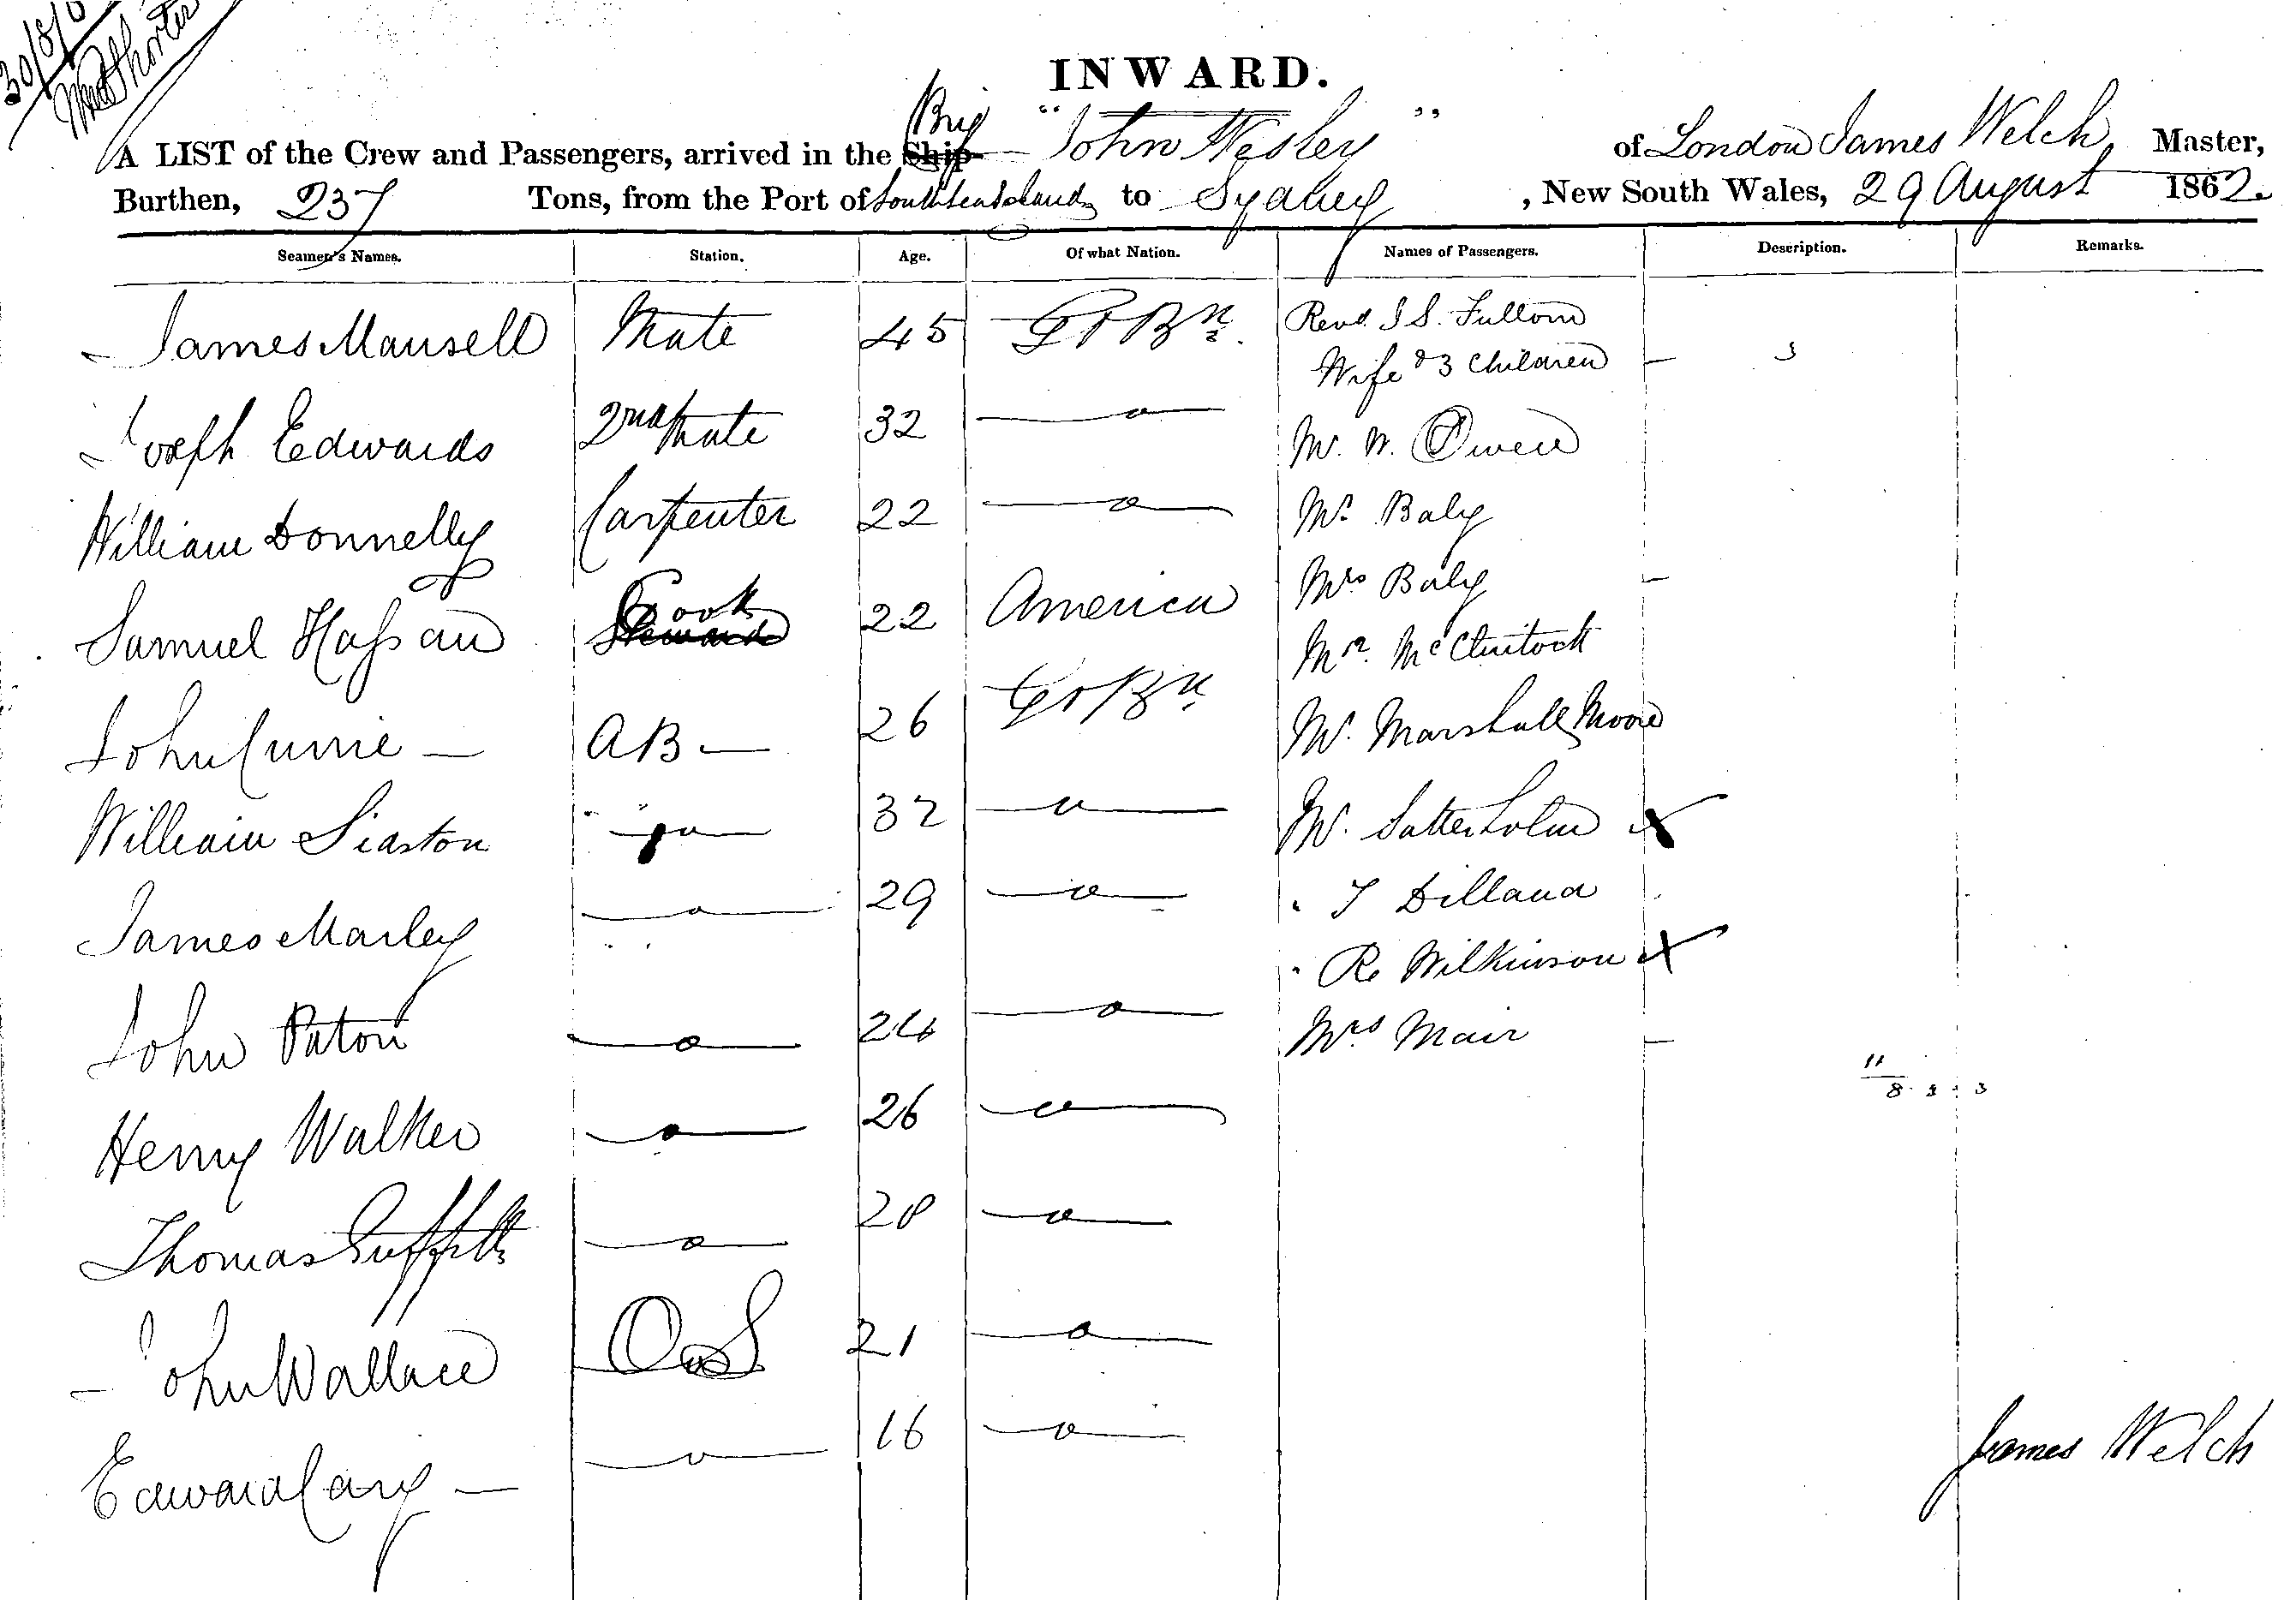 30/8/6
INWARD.
A LIST of the Crew and Passengers, arrived in the Ship Brig "John Wesley" of London James Welch, Master,
Burthen, 237 Tons, from the Port of South Sea Islands to Sydney, New South Wales, 29 August 1862.
Seamen's Names. Station. Age. Of what Nation. Names of Passengers. Description. Remarks.
James Mansell Mate 45 Gt Bn. Revd. J S. Fullom
Wife & 3 Children – 3
Joseph Edwards 2nd Mate 32 — " — Mr. W. Owen
William Donnelly Carpenter 22 — " — Mr Baly
Mrs Baly –
Samuel Hassan Cook 22 America Mr. McClintock
John Currie — AB — 26 Gt Bn. Mr. Marshall Moore
William Siaston — " — 32 — " — Mr. Satterholm x
James Marley — " — 29 — " — " J Dilland
" R Wilkinson x
John Paton — " — 24 — " — Mrs Mair –
11
8 . 3 : 3
Henry Walker — " — 26 — " —
Thomas Griffiths — " — 28 — " —
John Wallace O S 21 — " —
Edward Cary — — " — 16 — " —
James Welch